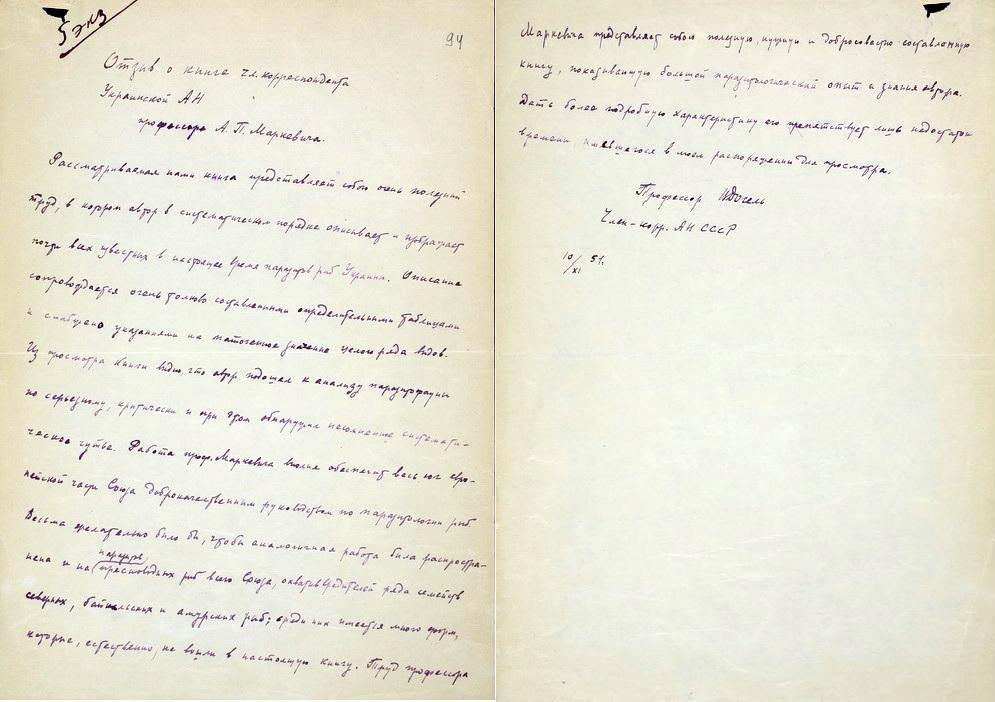 5 экз
94
Отзыв о книге чл. корреспондента
Украинской АН
профессора А. П. Маркевича.
Рассматриваемая нами книга представляет собою очень полезный
труд, в котором автор в систематическом порядке описывает и изображает
почти всех известных в настоящее время паразитов рыб Украины. Описание
сопровождается очень толково составленными определительными таблицами
и снабжено указаниями на патогенное значение целого ряда видов.
Из просмотра книги видно, что автор подошел к анализу паразитофауны
по серьезному, критически и при этом обнаружил несомненное системати-
ческое чутье. Работа проф. Маркевича вполне обеспечит весь юг евро-
пейской части Союза доброкачественным руководством по паразитологии рыб.
Весьма желательно было бы, чтобы аналогичная работа была распростра-
паразитов
нена и на (пресноводных рыб всего Союза, охватив вредителей ряда семейств
северных, байкальских и амурских рыб; среди них имеется много форм,
которые, естественно, не вошли в настоящую книгу. Труд профессора
Маркевича представляет собою полезную, нужную и добросовестно составленную
книгу, показывающую большой паразитологический опыт и знания автора.
Дать более подробную характеристику его препятствует лишь недостаток
времени имевшегося в моем распоряжении для просмотра.
Профессор ВДогель
Член-корр. АН СССР
10/XI 51.